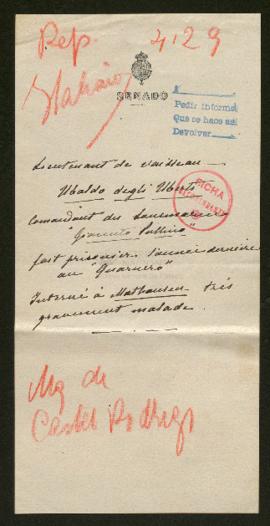 Rep. 4129
Italiano
SENADO
Pedir informe
Que se hace así
Devolver
Lieutenant de vaisseau
Ubaldo degli Uberti
Comandant du Sousmarin
"Giacinto Pullino"
fait prisonier l'année dernière
au "Quarnero"
Interné à Mathausen très
gravement malade.
FICHA
Mq de
Castel Rodrigo